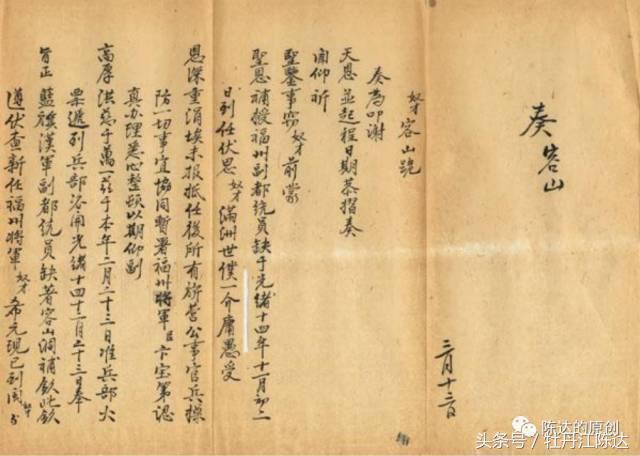 奏容山
三月十三日
奴才容山跪
奏為叩謝
天恩並起程日期恭摺奏
聞仰祈
聖鑒事竊奴才前蒙
聖恩補授福州副都統員缺于光緒十四年十一月初二
日到任伏思奴才滿洲世僕一介庸愚受
恩深重涓埃未报抵任後所有旂营公事官兵操
防一切事宜協同暫署福州將軍臣卞宝第認
真办理悉心整頓以期仰副
高厚洪慈于萬一茲于本年二月二十三日准兵部火
票遞到兵部咨開光緒十四十二月二十三日奉
旨正藍旂漢軍副都統員缺著容山調補欽此欽
遵伏查新任福州將軍奴才希元現已到闽
陈达的原创
头条号 / 牡丹江陈达